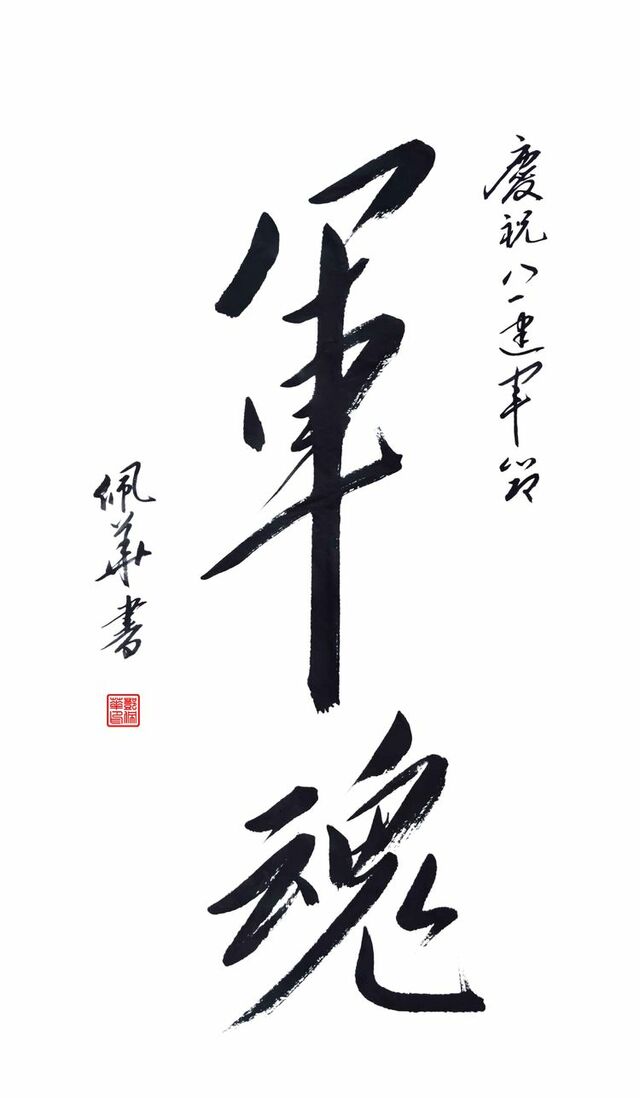 慶祝八一建军節
军魂
佩華書